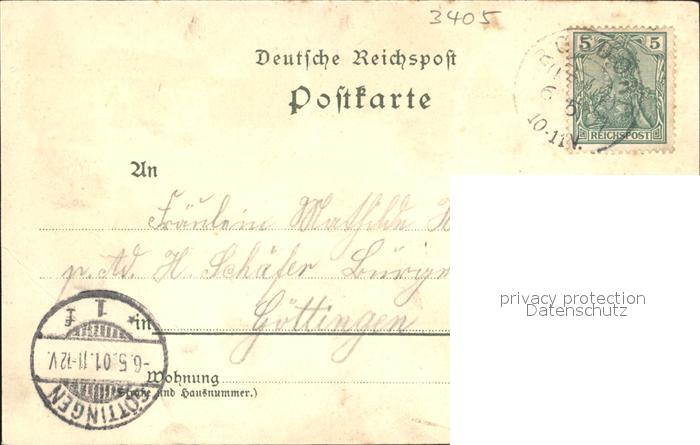 3405
Deutsche Reichspost
Postkarte
5 5
REICHSPOST
10-11V.
An
Fräulein Mathilde
p. Ad. H. Schäfer
in Göttingen
Wohnung
(Straße und Hausnummer.)
1
-6.5.01.11-12V.
GÖTTINGEN
privacy protection
Datenschutz